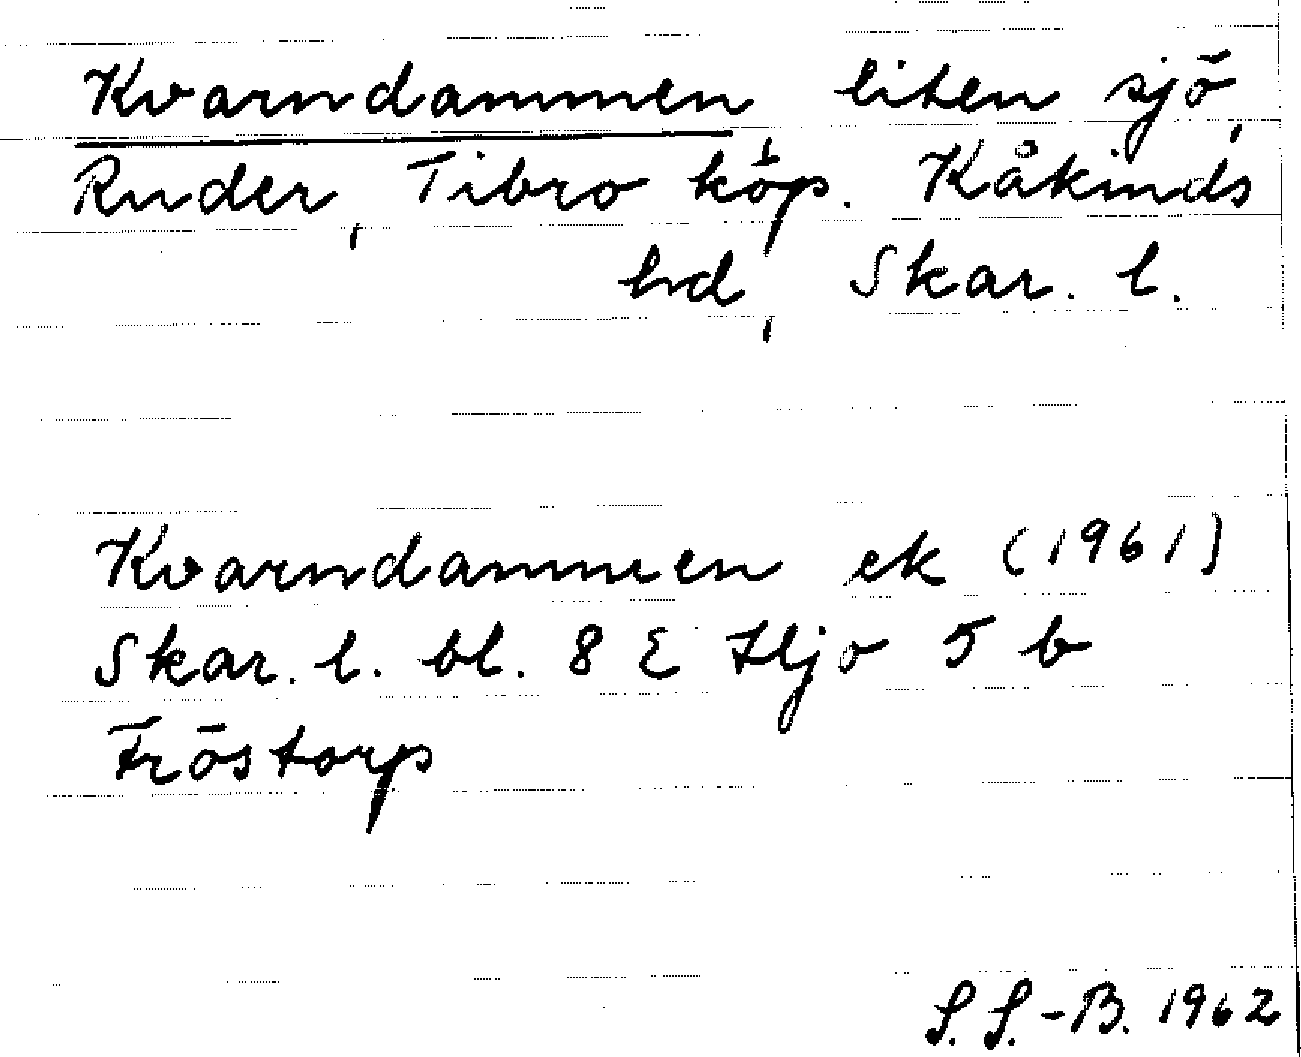 Kvarndammen, liten sjö,
Ruder, Tibro köp. Kåkinds
hd, Skar. l.
Kvarndammen ek (1961)
Skar. l. bl. 8 E Hjo 5 b
Fröstorp
S. S.-B. 1962